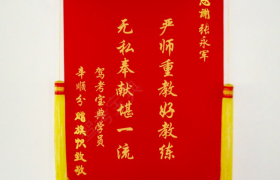 感谢张永军
严师重教好教练
无私奉献堪一流
驾考宝典学员
辛顺分 赠旗帜致敬